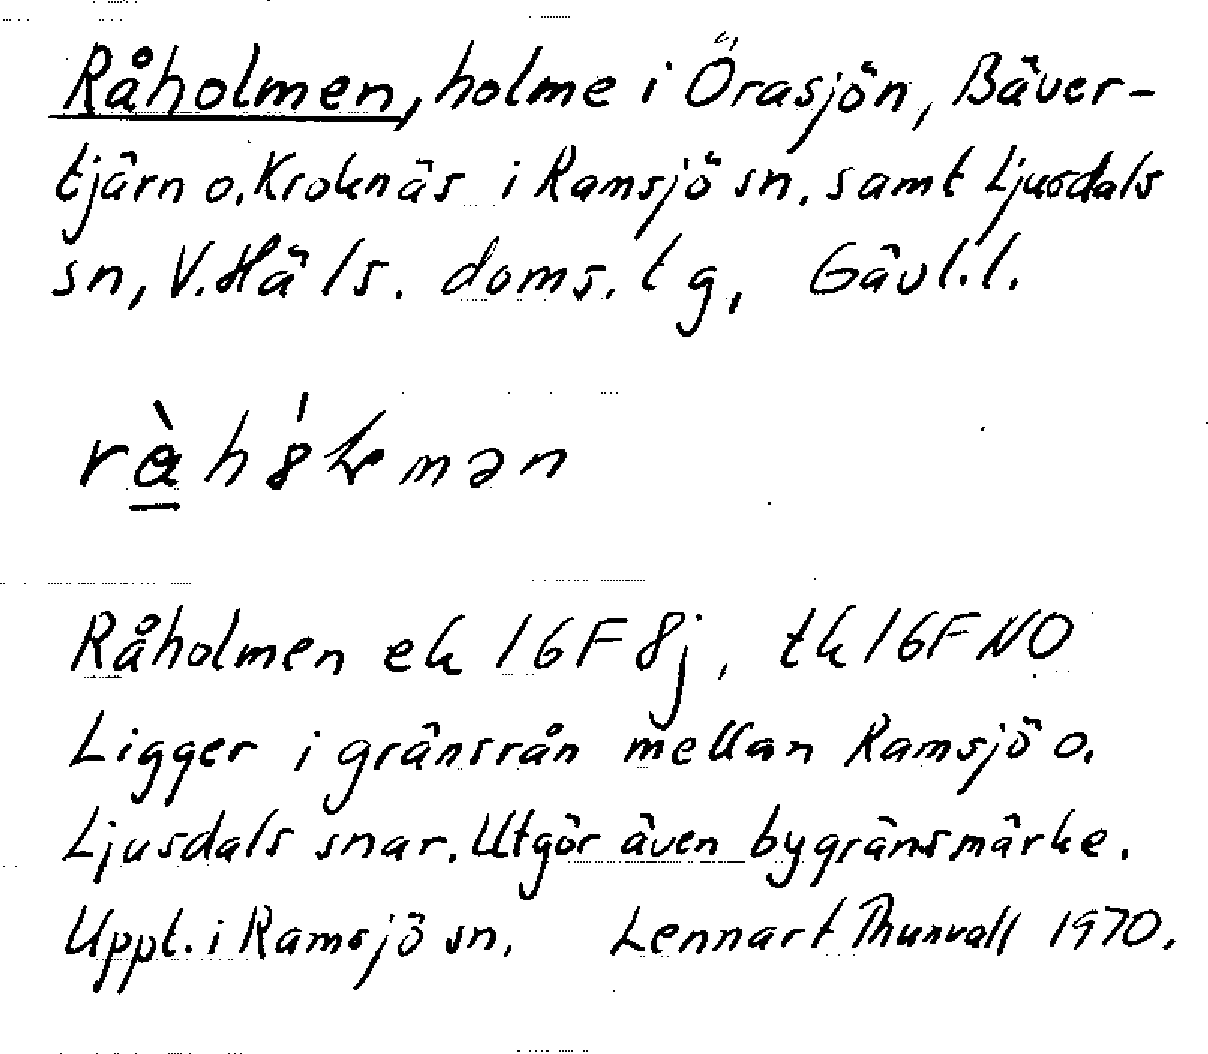 Råholmen, holme i Örasjön, Bäver-
tjärn o. Kroknäs i Ramsjö sn. samt Ljusdals
sn, V. Häls. doms. tg, Gävl. l.
Råholmen ek 16F 8j, tk 16F NO
Ligger i gränsrån mellan Ramsjö o.
Ljusdals snar. Utgör även bygränsmärke.
Uppt. i Ramsjö sn. Lennart Thunvall 1970.